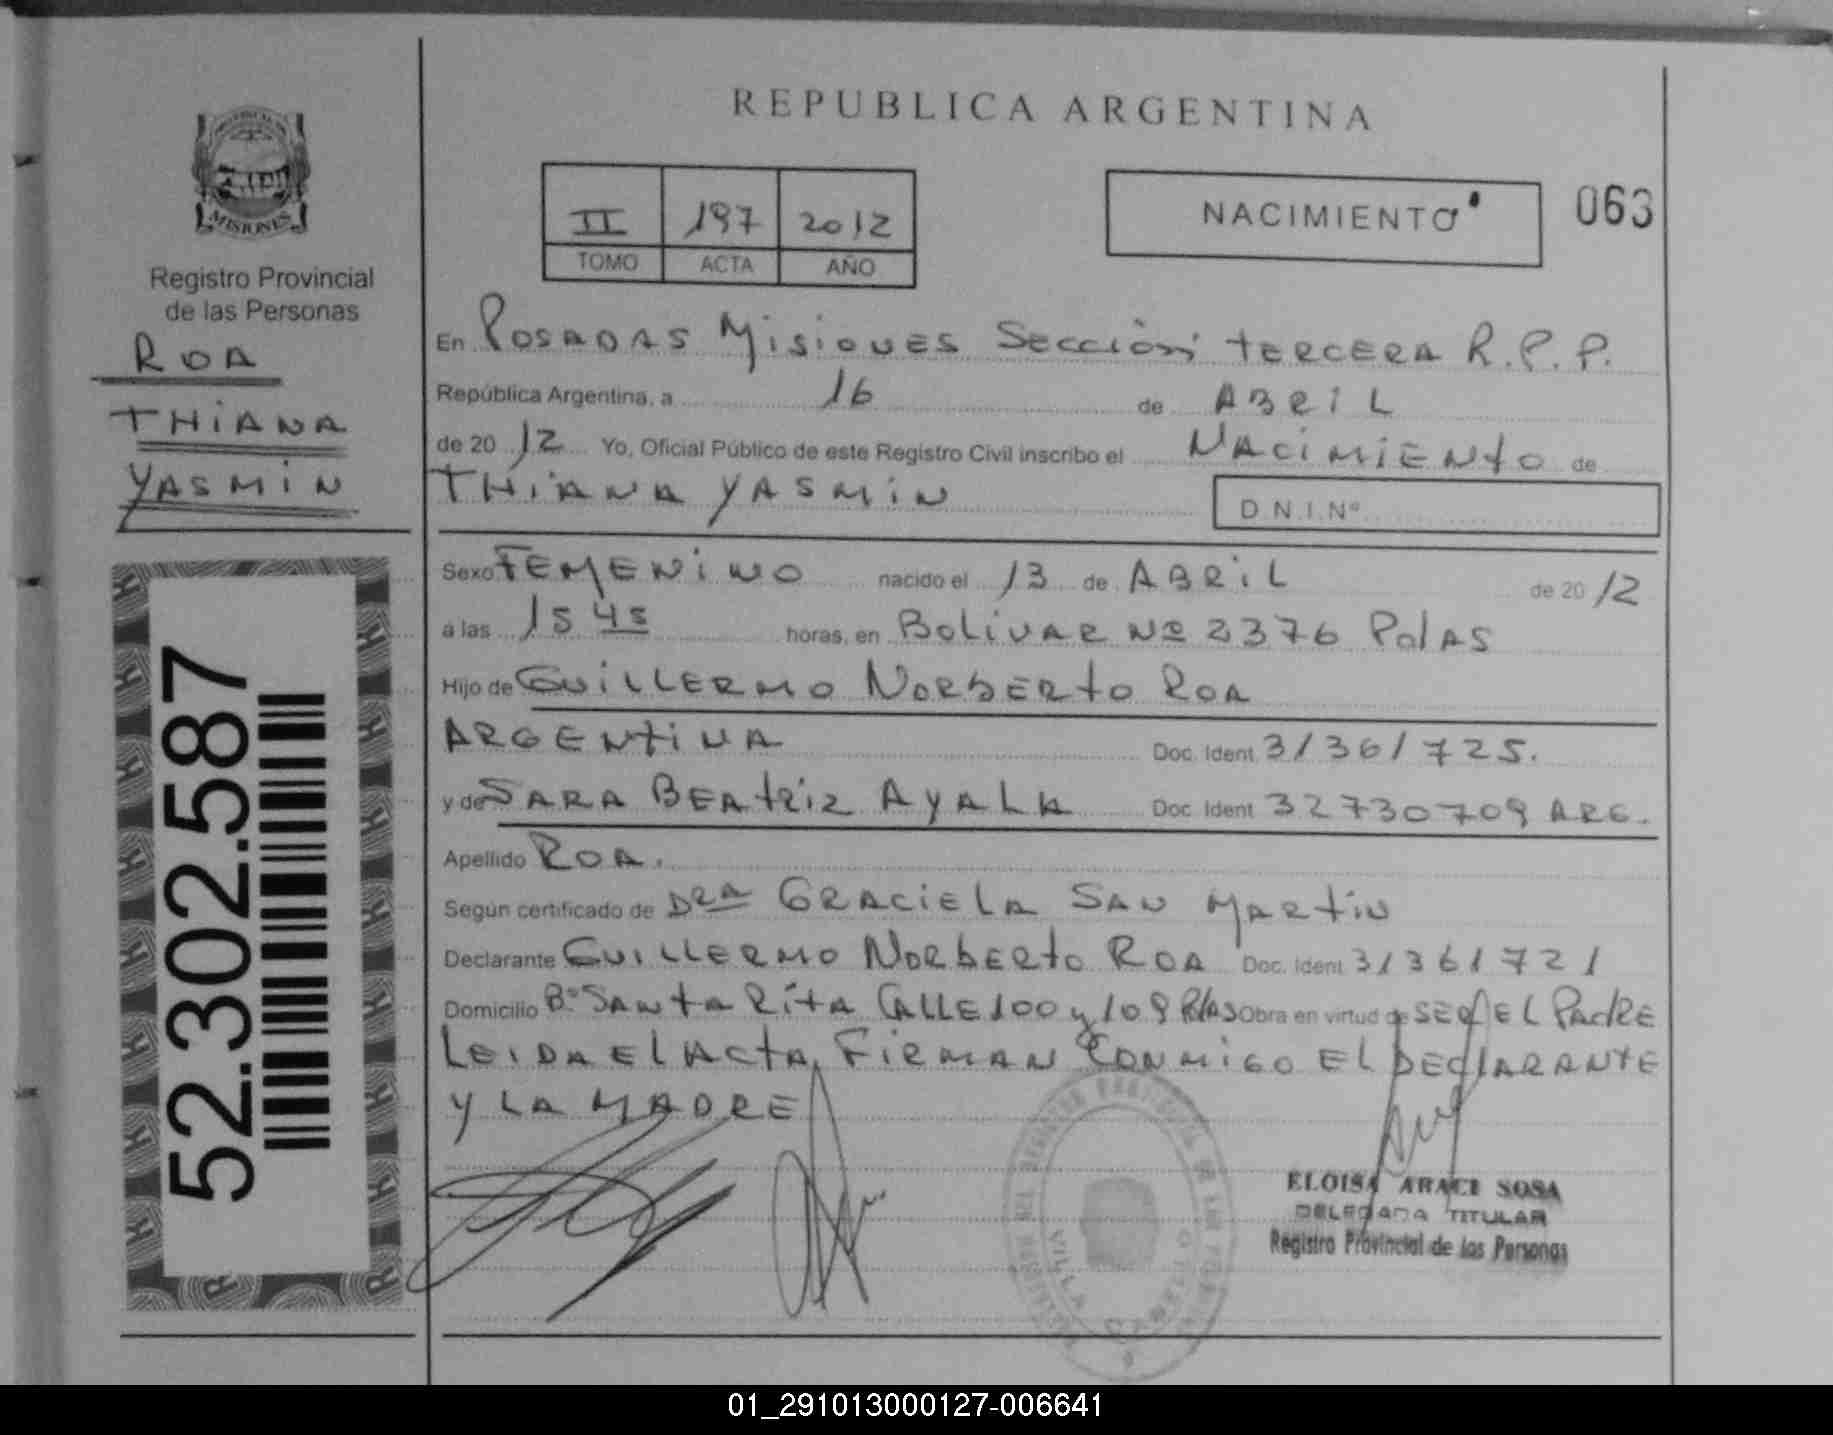 REPUBLICA ARGENTINA
MISIONES
Registro Provincial
de las Personas
ROA
THIANA
YASMIN
52.302.587
II 197 2012
TOMO ACTA AÑO
NACIMIENTO
063
En POSADAS MISIONES SECCION TERCERA R.P.P.
República Argentina, a 16 de ABRIL
de 20 12 Yo, Oficial Público de este Registro Civil inscribo el NACIMIENTO de
THIANA YASMIN D.N.I.Nº
Sexo FEMENINO nacido el 13 de ABRIL de 20 12
a las 15 45 horas, en BOLIVAR Nº 2376 PdAS
Hijo de GUILLERMO NORBERTO ROA
ARGENTINA Doc. Ident. 31361725.
y de SARA BEATRIZ AYALA Doc. Ident 32730709 ARG.
Apellido ROA.
Según certificado de DRA GRACIELA SAN MARTIN
Declarante GUILLERMO NORBERTO ROA Doc. Ident 31361721
Domicilio Bº SANTA RITA CALLE 100 y 109 PdAS Obra en virtud de SER EL PADRE
LEIDA EL ACTA, FIRMAN CONMIGO EL DECLARANTE
Y LA MADRE
VILLA
ELOISA ARACI SOSA
DELEGADA TITULAR
Registro Provincial de las Personas
01_291013000127-006641